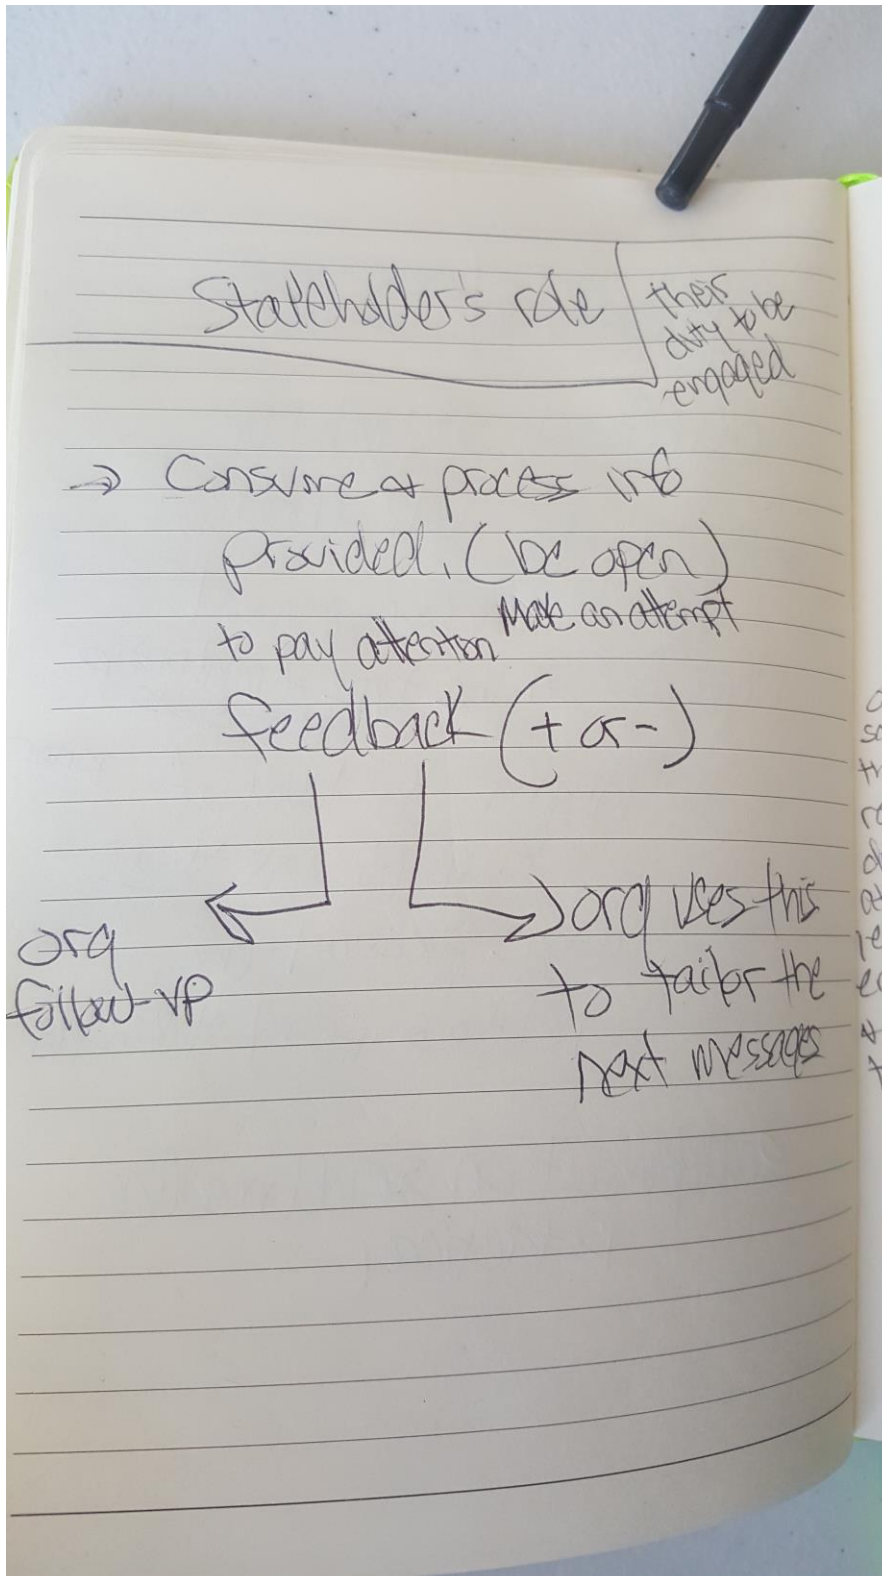 Stakeholder's role
their
duty to be
engaged
→ Consume & process info
provided. (be open)
Make an attempt
to pay attention
feedback (+ or -)
org
follow-up
org uses this
to tailor the
next messages